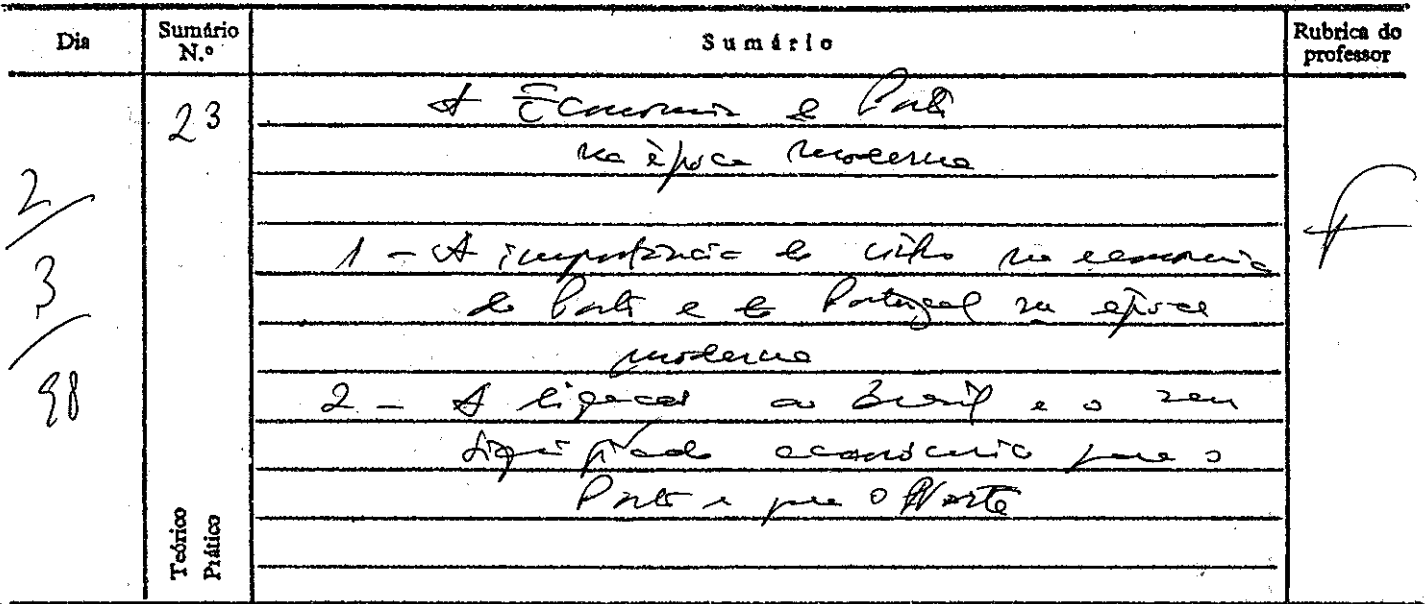 Dia
Sumário N.º
Sumário
Rubrica do professor
2/3/98
23
A Economia do Porto
na època moderna
1 - A importância do vinho na economia
do Porto e de Portugal na época
moderna
2 - A ligação ao Brasil e o seu
significado económico para o
Porto e para o Norte
Teórico
Prático